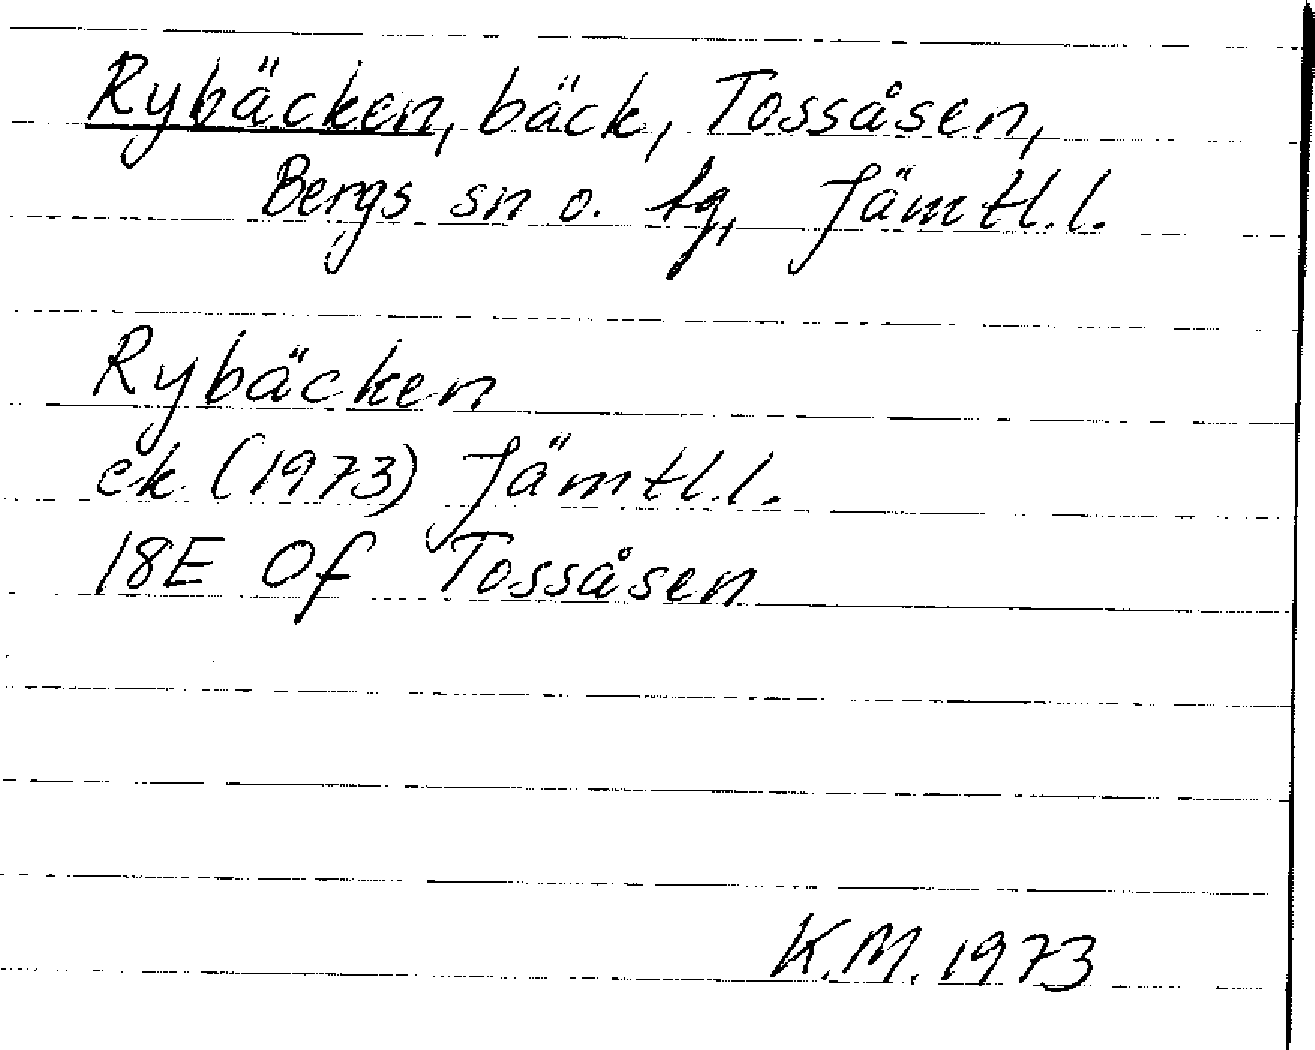 Rybäcken, bäck, Tossåsen,
Bergs sn o. tg, Jämtl.l.
Rybäcken
ek (1973) Jämtl.l.
18E Of Tossåsen
K.M. 1973